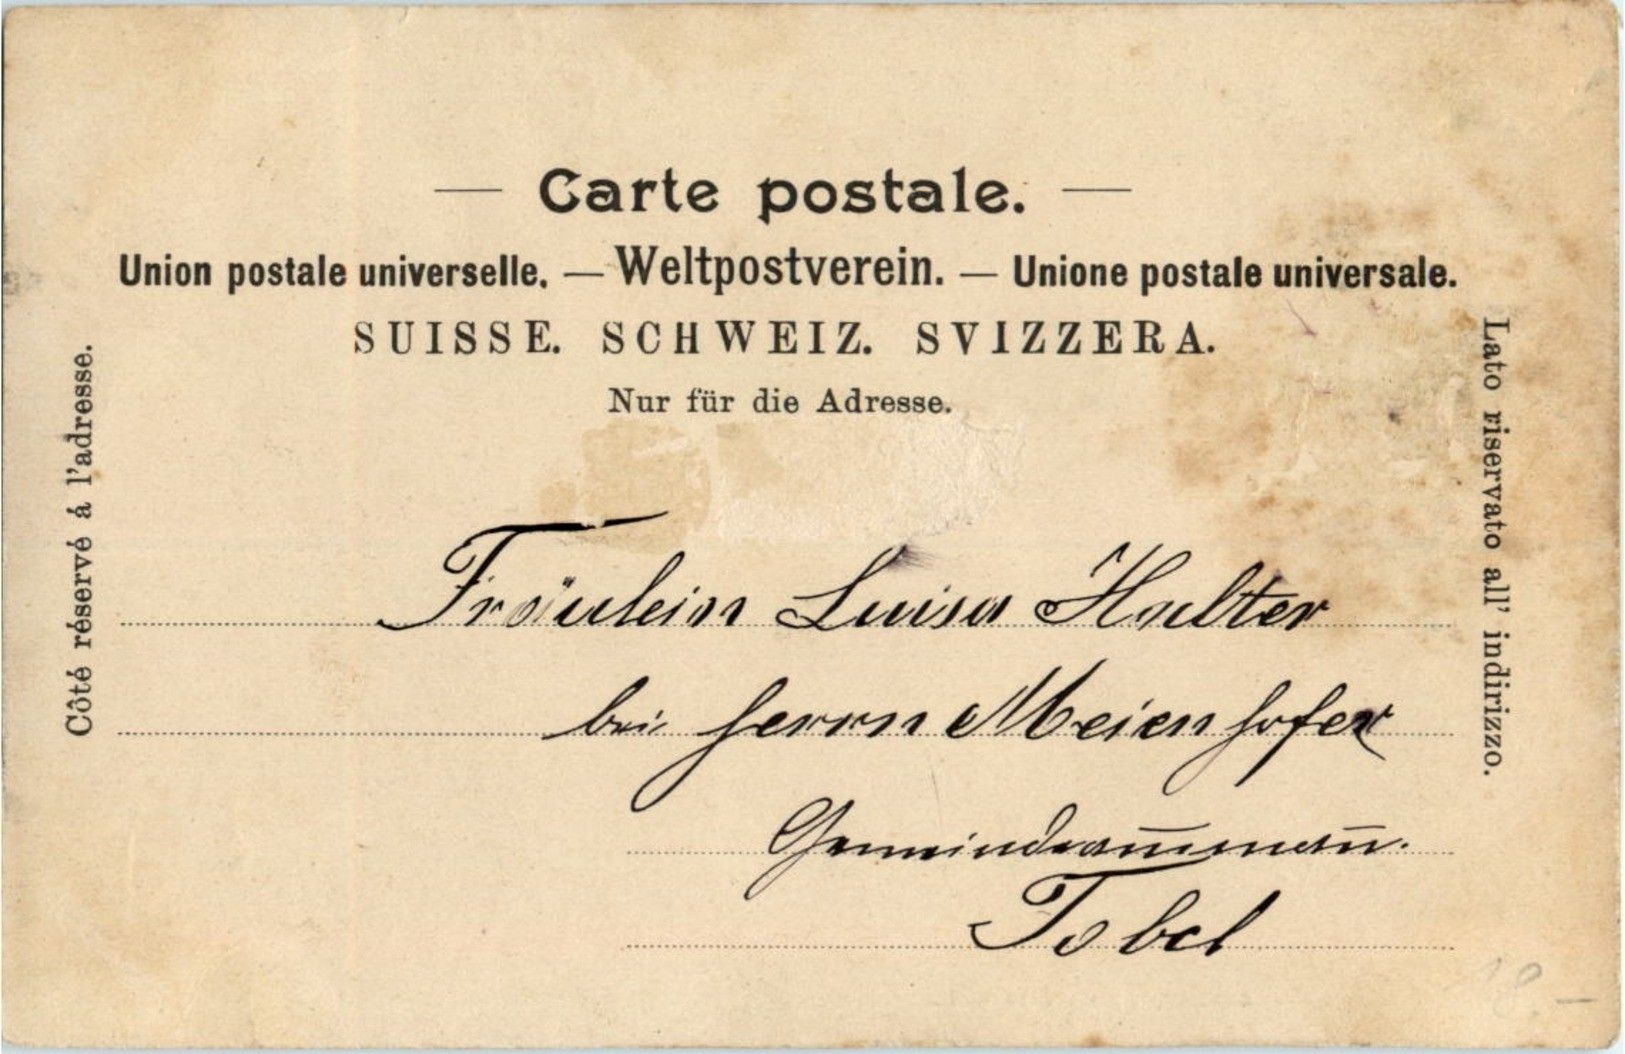 — Carte postale. —
Union postale universelle. — Weltpostverein. — Unione postale universale.
SUISSE. SCHWEIZ. SVIZZERA.
Nur für die Adresse.
Côté réservé á l'adresse.
Lato riservato all' indirizzo.
Fräulein Luisa Halter
bei Herrn Meienhofer
Gemeindeam̅man̅.
Tobel
18.–